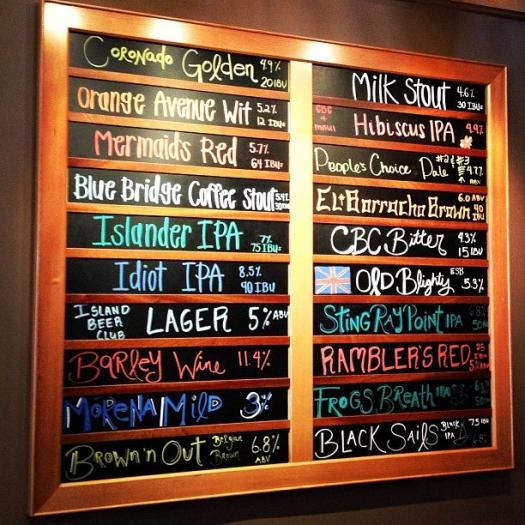 Coronado Golden 4.9% 20 IBU
Orange Avenue Wit 5.2% 12 IBU
Mermaids Red 5.7% 64 IBU
Blue Bridge Coffee Stout 5.4%
Islander IPA 7% 75 IBU
Idiot IPA 8.5% 90 IBU
Island Beer Club LAGER 5% ABV
Barley Wine 11.4%
Morena Mild 3%
Brown'n Out Belgian Brown 6.8% ABV
Milk Stout 4.6% 30 IBU
CBC & Maui Hibiscus IPA 4.9%
People's Choice Pale #2 & #3
El Borracho Brown 6.0 ABV 40 IBU
CBC Bitter 4.3% 15 IBU
Old Blighty ESB 5.3%
Sting Ray Point IPA 6.8%
Rambler's Red
Frogs Breath IPA
Black Sails Black IPA 75 IBU 6.8%